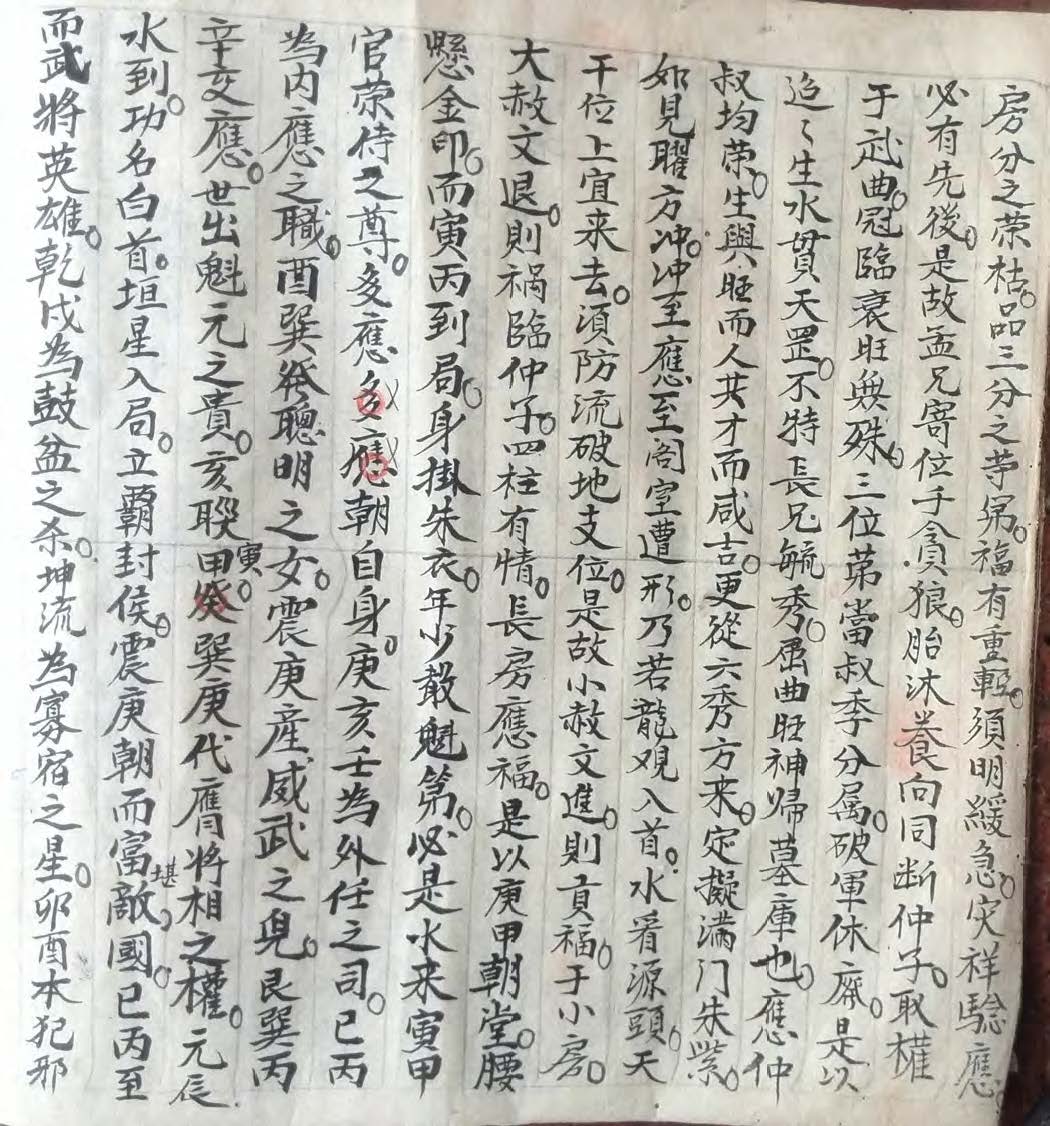 房分之荣枯。品三分之苐昴。福有重輕。須明緩急。灾祥騐應。
必有先後。是故孟兄寄位于貪狼。胎沐養向同断仲子。取權
于武曲。冠臨衰旺無殊。三位苐當叔季分属。破軍休廢。是以
迢〻生水貫天罡。不特長兄毓秀。屈曲旺神歸墓庫也。應仲
叔均荣。生與旺而人共才而咸吉。更從六秀方来。定擬满门朱紫。
如見曜方冲。冲至應至阁室遭形。乃若龍观入首。水看源頭。天
干位上宜来去。須防流破地支位。是故小赦文進。則貢福。于小房。
大赦文退。則禍臨仲子。四柱有情。長房應福。是以庚甲朝堂。腰
懸金印。而寅丙到局。身掛朱衣。年少敢魁第。必是水来寅甲
官荣侍之尊。多應多應朝自身。庚亥壬為外任之司。巳丙
為内應之職。酉巽癸聰明之女。震庚産威武之兒。艮巽丙
辛交應。世出魁元之貴。亥聫甲癸寅。巽庚代膺将相之權。元辰
水到。功名白首。垣星入局。立霸封侯。震庚朝而富堪敵國。巳丙至
而武將英雄。乾戌為鼓盆之杀。坤流為寡宿之星。卯酉本犯邪